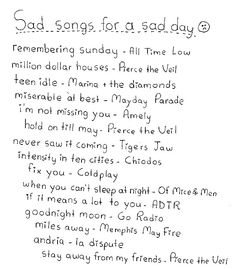 Sad songs for a sad day ☹
remembering sunday - All Time Low
million dollar houses - Pierce the Veil
teen idle - Marina + the diamonds
miserable at best - Mayday Parade
i'm not missing you - Amely
hold on till may - Pierce the Veil
never saw it coming - Tigers Jaw
intensity in ten cities - Chiodos
fix you - Coldplay
when you can't sleep at night - Of Mice & Men
if it means a lot to you - ADTR
goodnight moon - Go Radio
miles away - Memphis May Fire
andria - la dispute
stay away from my friends - Pierce the Veil